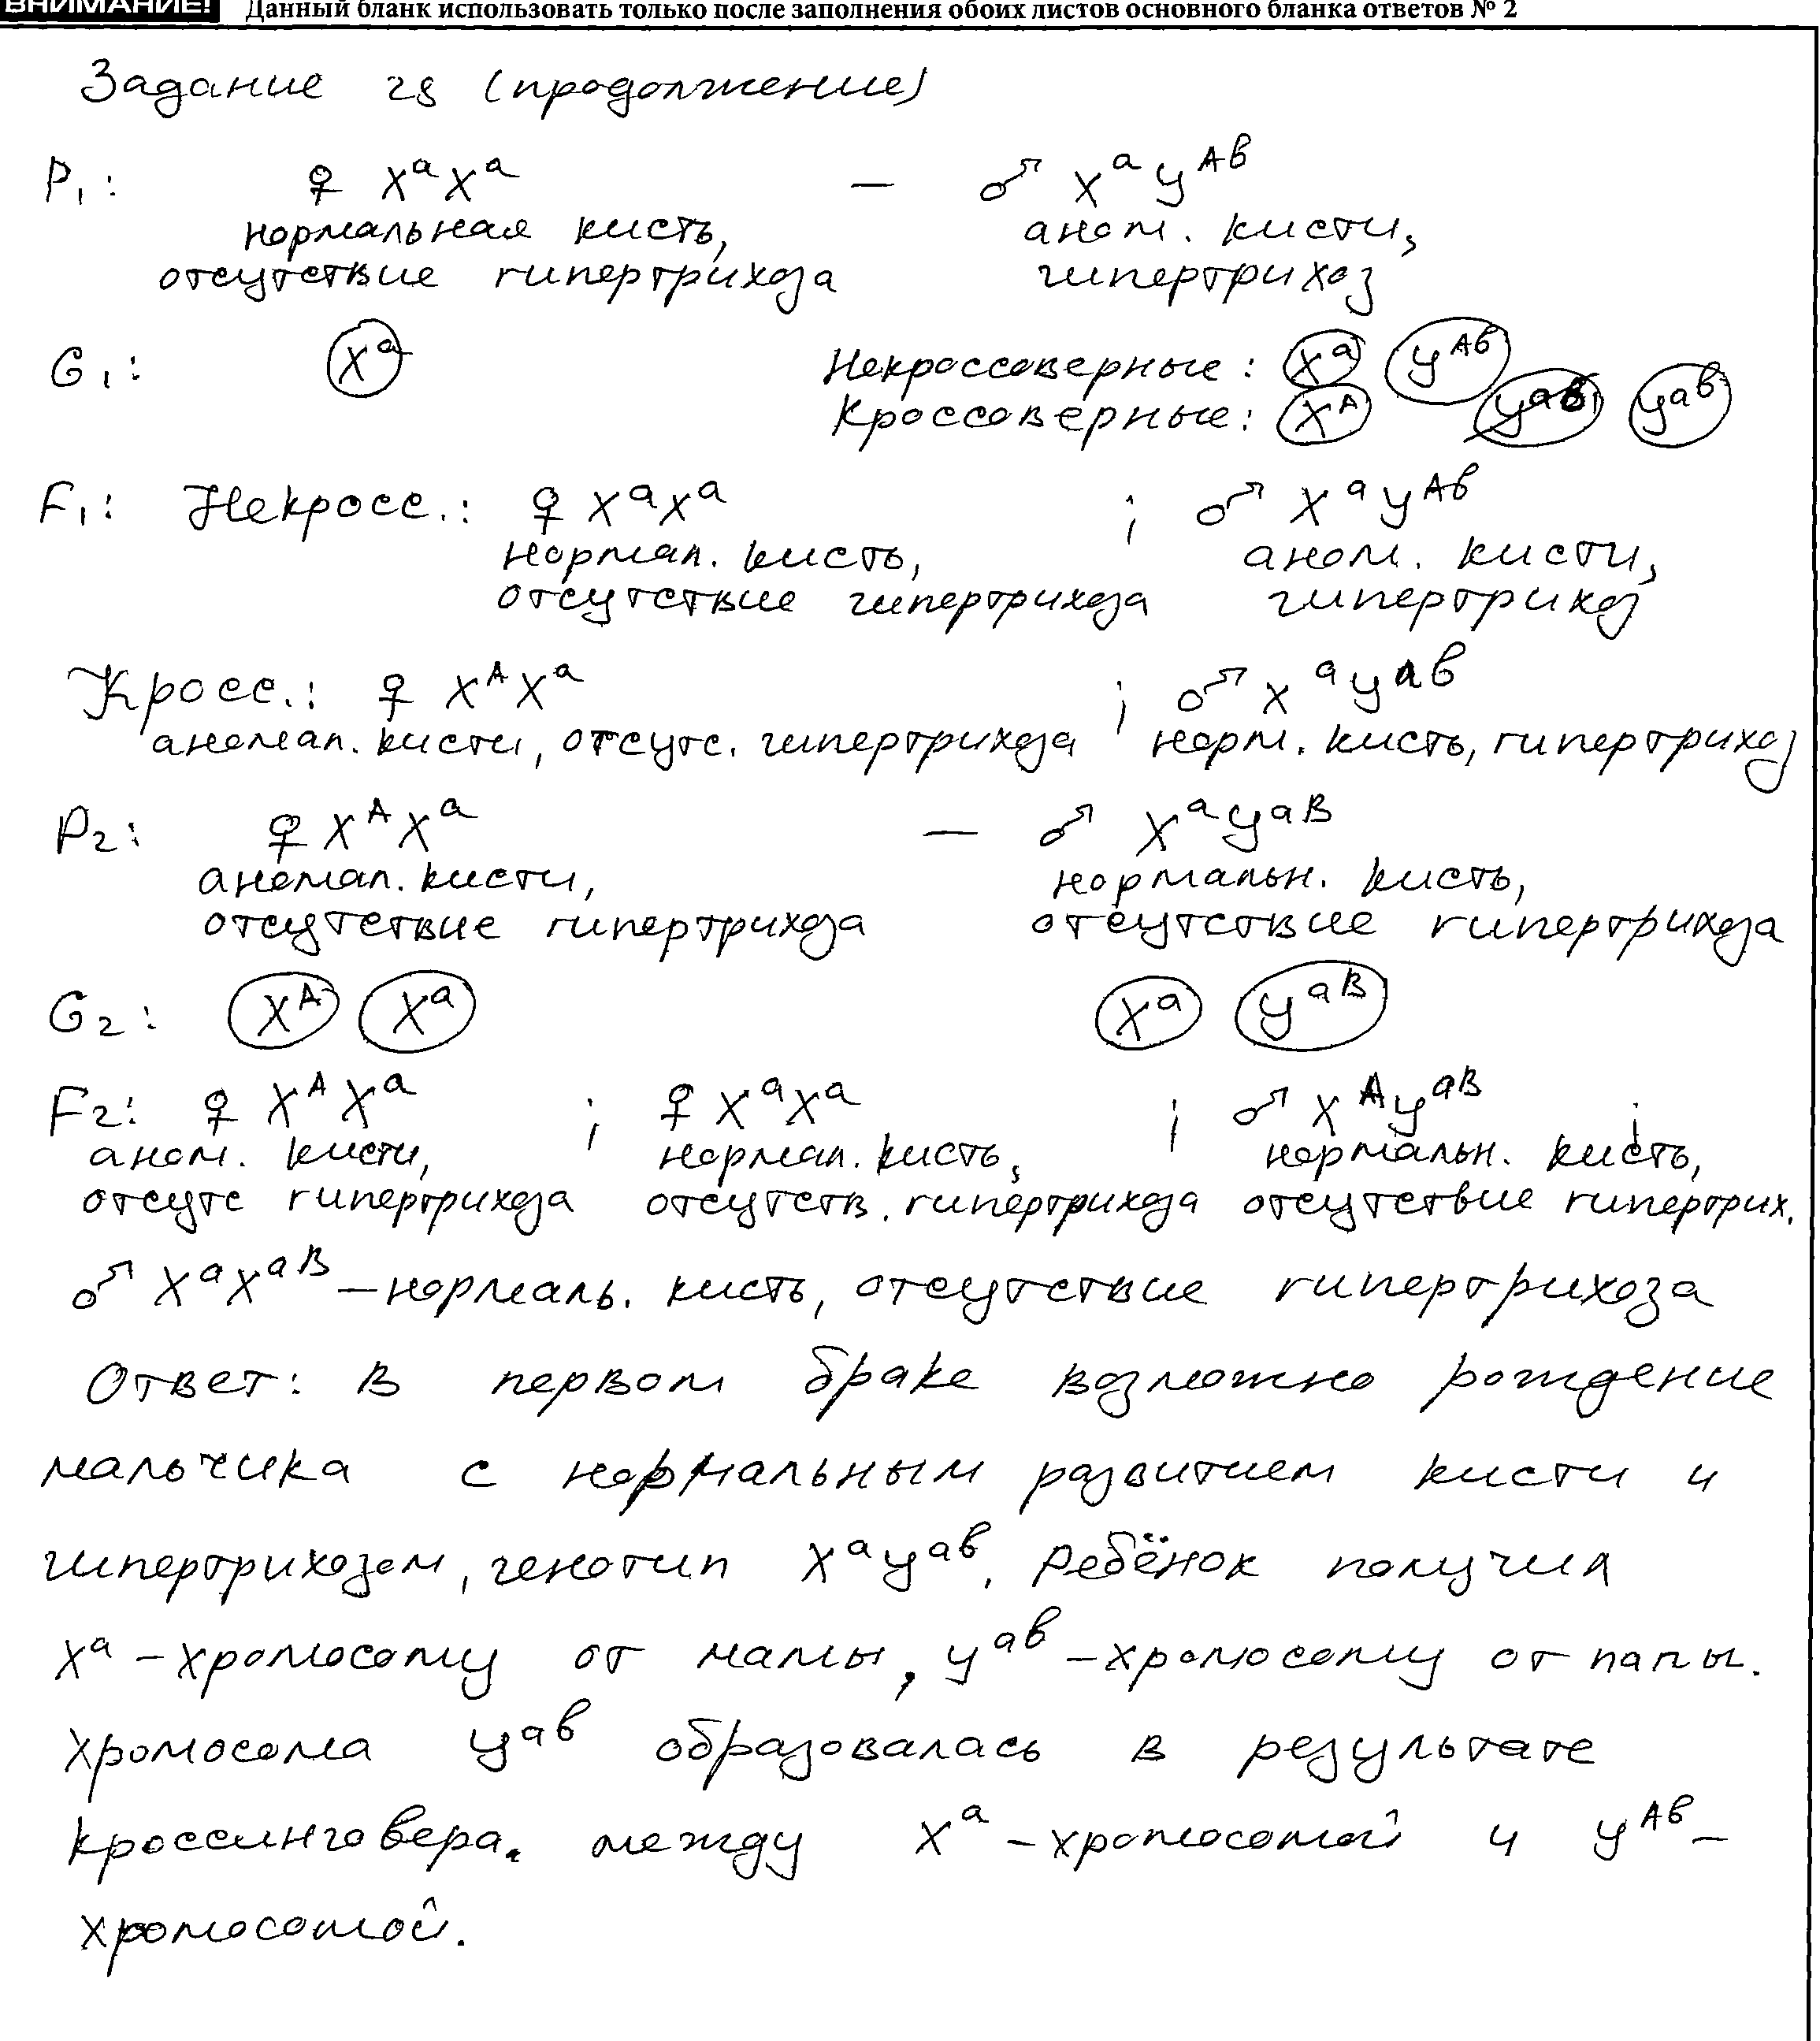 ВНИМАНИЕ! Данный бланк использовать только после заполнения обоих листов основного бланка ответов № 2
Задание 28 (продолжение)
P₁: ♀ XᵃXᵃ — ♂ XᵃYᴬᵇ
нормальная кисть, аном. кисти,
отсутствие гипертрихоза гипертрихоз
G₁: Xᵃ Некроссоверные: Xᵃ Yᴬᵇ
Кроссоверные: Xᴬ Yᵃᵇ
F₁: Некросс.: ♀ XᵃXᵃ ; ♂ XᵃYᴬᵇ
нормал. кисть, аном. кисти,
отсутствие гипертрихоза гипертрихоз
Кросс.: ♀ XᴬXᵃ ; ♂ XᵃYᵃᵇ
аномал. кисти, отсутс. гипертрихоза норм. кисть, гипертрихоз
P₂: ♀ XᴬXᵃ — ♂ XᵃYᵃᴮ
аномал. кисти, нормальн. кисть,
отсутствие гипертрихоза отсутствие гипертрихоза
G₂: Xᴬ Xᵃ Xᵃ Yᵃᴮ
F₂: ♀ XᴬXᵃ ; ♀ XᵃXᵃ ; ♂ XᴬYᵃᴮ ;
аном. кисти, нормал. кисть, нормальн. кисть,
отсутс гипертрихоза отсутств. гипертрихоза отсутствие гипертрих.
♂ XᵃXᵃᴮ – нормаль. кисть, отсутствие гипертрихоза
Ответ: в первом браке возможно рождение
мальчика с нормальным развитием кисти и
гипертрихозом, генотип XᵃYᵃᵇ. Ребёнок получил
Xᵃ – хромосому от мамы, Yᵃᵇ – хромосому от папы.
Хромосома Yᵃᵇ образовалась в результате
кроссинговера. между Xᵃ – хромосомой и Yᴬᵇ –
хромосомой.